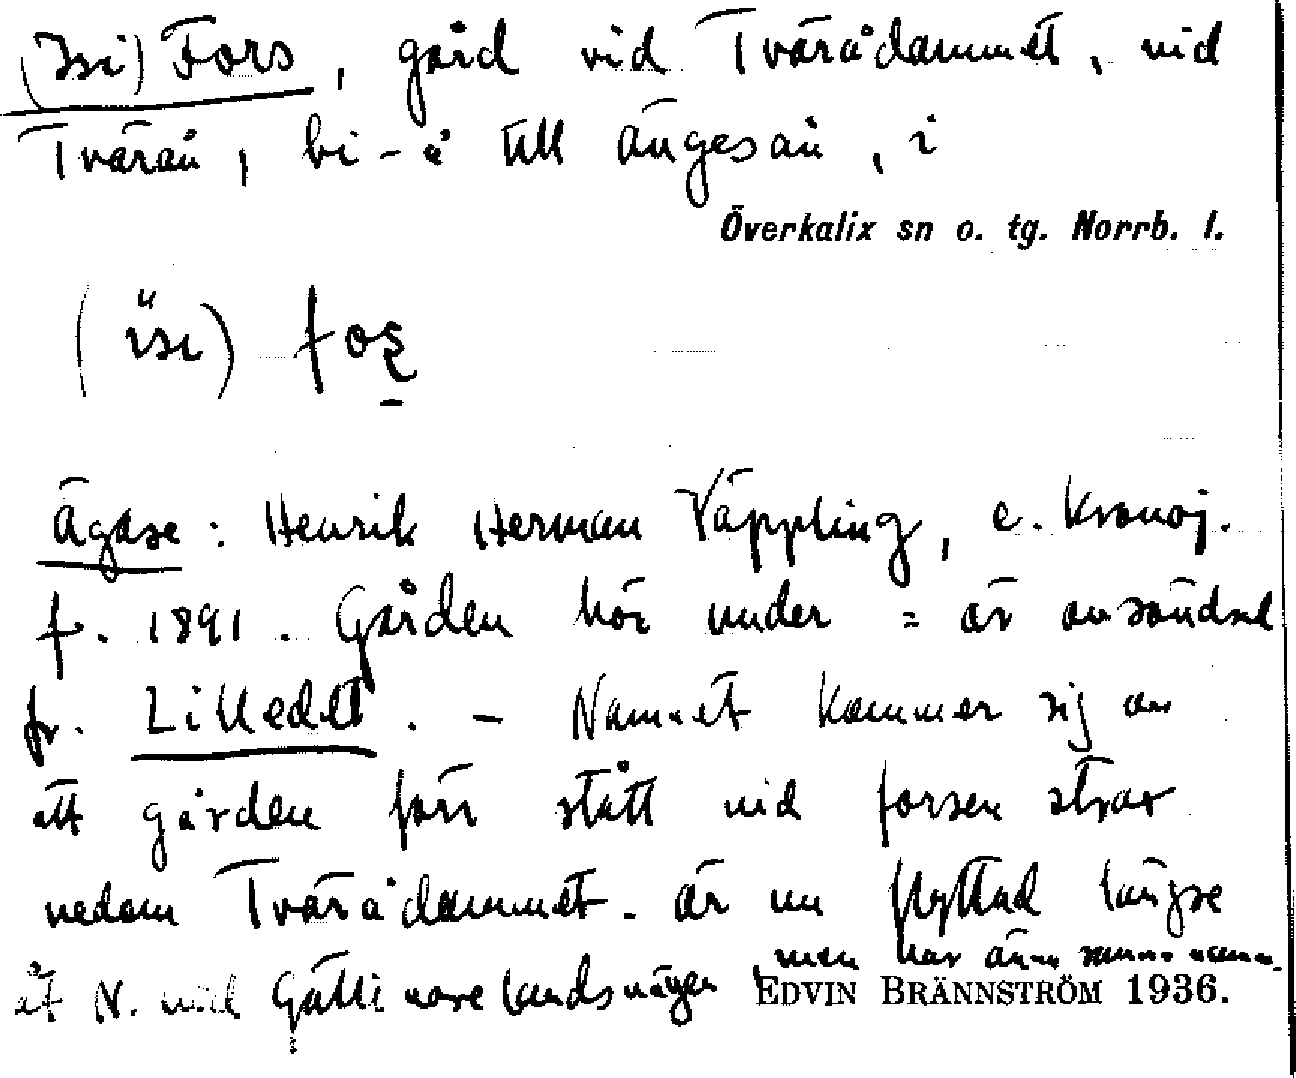 (Isi) Fors, gård vid Tvärådammet, vid
Tvärån, bi-å till Ängesån, i
Överkalix sn o. tg. Norrb. l.
(ïsi) foş
Ägare: Henrik Herman Väppling, e. kronoj.
f. 1891. Gården hör under = är avsöndrad
fr. Lilledet. - Namnet kommer sig av
att gården förr stått vid forsen strax
nedom Tvärådammet. är nu flyttad längre
men har ännu samma namn.
åt N. vid Gällivarelandsvägen
EDVIN BRÄNNSTRÖM 1936.